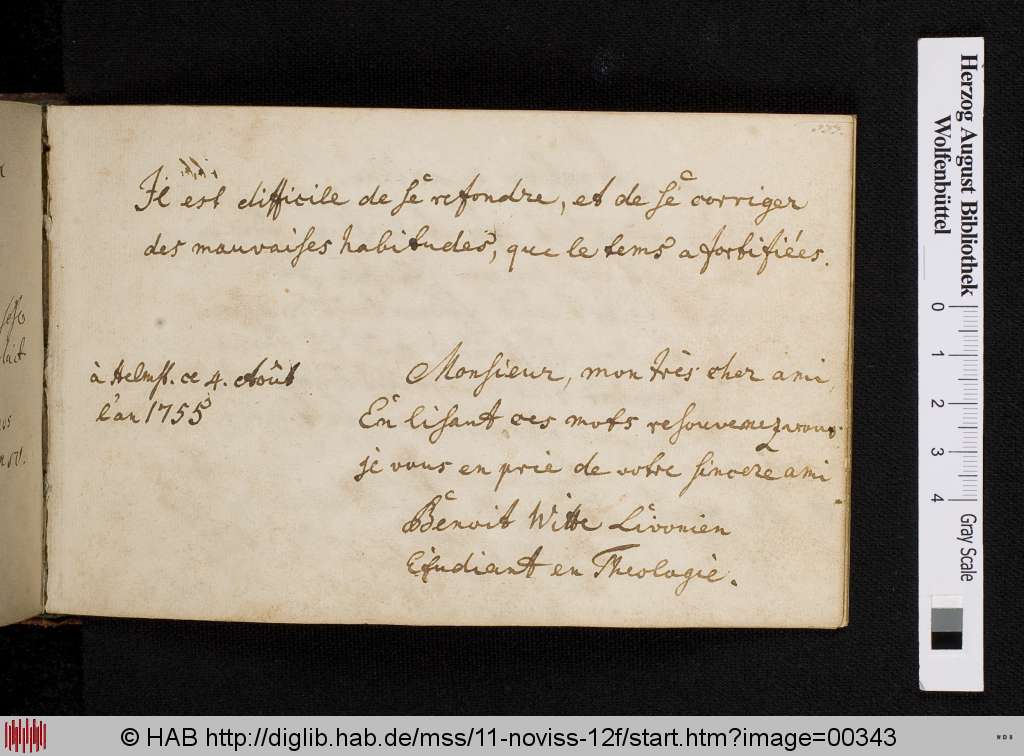 Il est difficile de se refondre, et de se corriger
des mauvaises habitudes, que le tems a fortifiées.
à Helmst. ce 4. Août
l'an 1755
Monsieur, mon très cher ami
En lisant ces mots resouvenez vous
je vous en prie de votre sincere ami
Benoit Witte Livonien
Etudiant en Theologie.
Herzog August Bibliothek
Wolfenbüttel
0
1
2
3
4
Gray Scale
© HAB http://diglib.hab.de/mss/11-noviss-12f/start.htm?image=00343